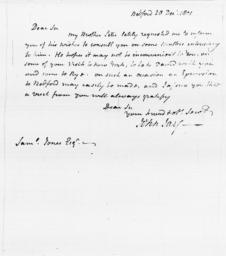 Bedford 20 Decr. 1805
Dear Sir
my Brother Peter lately requested me to inform
you of his wishes to consult you on some matters interesting
to him. He hopes it may not be inconvenient to you, on
some of your Visits to New York, to take Passage with you
and come to Rye. on such an occasion an Excursion
to Bedford may easily be made, and I assure you that
a visit from you will always gratify
Dear Sir
your friend & obt. Servt.
John Jay
Saml. Jones Esqr.